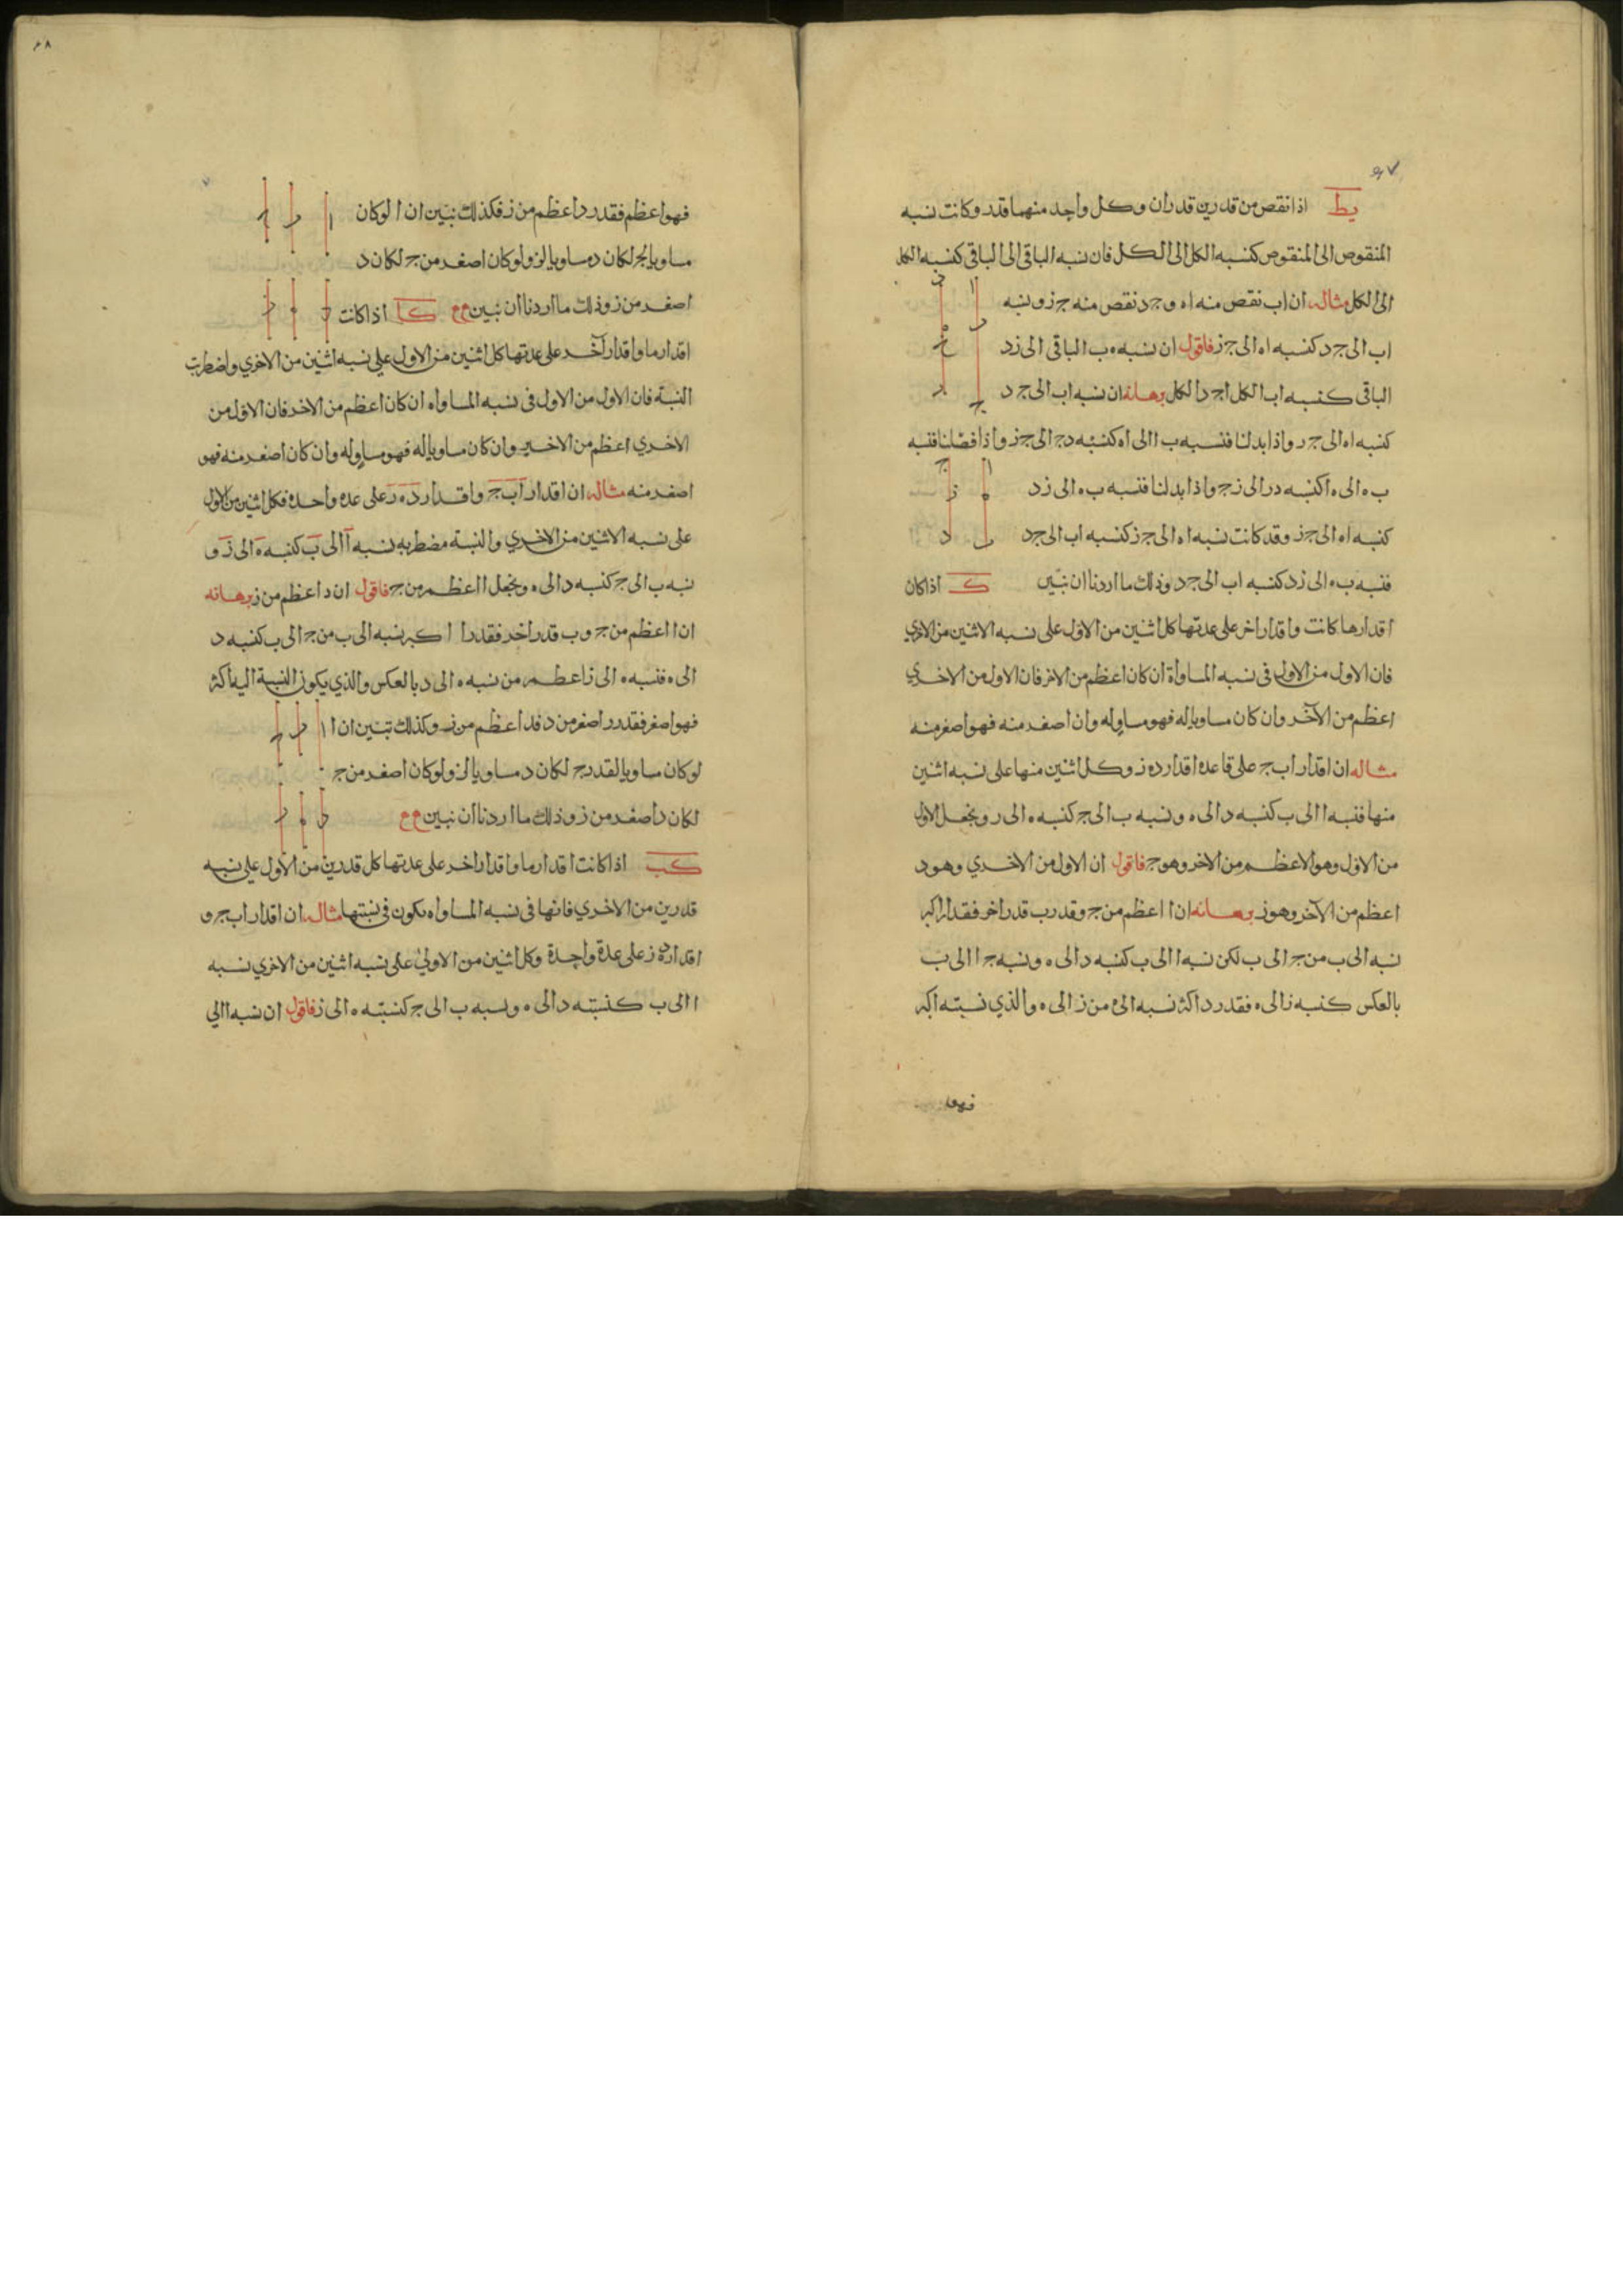 ٤٧
يط اذا نقص من قدرين قدران وكل واحد منهما قدر وكانت نسبه
المنقوص الى المنقوص كنسبه الكل الى الكل فان نسبه الباقى الى الباقى كنسبه الكل
الى الكل مثاله ان اب نقص منه اه و جد نقص منه جز ونسبه
اب الى جد كنسبه اه الى جز فاقول ان نسبه ه ب الباقى الى زد
الباقى كنسبه اب الكل ا جد الكل برهانه ان نسبه اب الى جد
كنسبه اه الى جر واذا بدلنا فنسبه ب ا الى اه كنسبه دج الى جز واذا فصلنا فنسبه
ب ه الى ه ا كنسبه در الى زج واذا بدلنا فنسبه ب ه الى زد
كنسبه اه الى جز وقد كانت نسبه اه الى جز كنسبه اب الى جد
فنسبه ب ه الى زد كنسبه اب الى جد وذلك ما اردنا ان نبين ك اذا كان
اقدارها كانت واقدار اخر على عدتها كل اثنين من الاول على نسبه الاثنين من الاخري
فان الاول من الاول فى نسبه المساواة ان كان اعظم من الاخر فان الاول من الاخري
اعظم من الآخر وان كان مساويا له فهو مساو له وان اصغر منه فهو اصغر منه
مثاله ان اقدار اب ج على قاعده اقدار ده ز وكل اثنين منها على نسبه اثنين
منها فنسبه ا الى ب كنسبه د الى ه ونسبه ب الى ج كنسبه ه الى ر ونجعل الاول
من الاول وهو الاعظم من الاخر وهو ج فاقول ان الاول من الاخري وهو د
اعظم من الآخر وهو ز برهانه ان ا اعظم من ج وقدر ب قدر اخر فقدر ا اكبر
نسبه الى ب من ج الى ب لكن نسبه ا الى ب كنسبه د الى ه ونسبه ج ا الى ب
بالعكس كنسبه ز الى ه فقدر د اكثر نسبه الى ه من ز الى ه والذي نسبته اكبر
فهو
٤٨
فهو اعظم فقدر د اعظم من ز فكذلك نبين ان ا لو كان
مساويا لج لكان د مساويا لز ولو كان اصغر من ج لكان د
اصغر من ز وذلك ما اردنا ان نبين كا اذا كانت
اقدار ما واقدار آخر على عدتها كل اثنين من الاول على نسبه اثنين من الاخري واضطربت
النسبة فان الاول من الاول فى نسبه المساواه ان كان اعظم من الاخر فان الاول من
الاخري اعظم من الاخير وان كان مساويا له فهو مساو له وان كان اصغر منه فهو
اصغر منه مثاله ان اقدار اب ج واقدار ده ز على عده واحده فكل اثنين من الاول
على نسبه الاثنين من الاخري والنسبة مضطربه نسبه ا الى ب كنسبه ه الى ز و
نسبه ب الى ج كنسبه د الى ه ونجعل ا اعظم من ج فاقول ان د اعظم من ز برهانه
ان ا اعظم من ج و ب قدر اخر فقدر ا اكبر نسبه الى ب من ج الى ب كنسبه د
الى ه فنسبه ه الى ز اعظم من نسبه ه الى د بالعكس والذي يكون النسبة اليه اكثر
فهو اصغر فقدر ر اصغر من د فد اعظم من ز وكذلك نبين ان ا
لو كان مساويا لقدر ج لكان د مساويا لز ولو كان اصغر من ج
لكان د اصغر من ز وذلك ما اردنا ان نبين
كب اذا كانت اقدار ما واقدار اخر على عدتها كل قدرين من الاول على نسبه
قدرين من الاخري فانها فى نسبه المساواه يكون فى نسبتها مثاله ان اقدار اب ج و
اقدار ده ز على عدة واحدة وكل اثنين من الاولى على نسبه اثنين من الاخري نسبه
ا الى ب كنسبته د الى ه ونسبه ب الى ج كنسبته ه الى ز فاقول ان نسبه ا الي